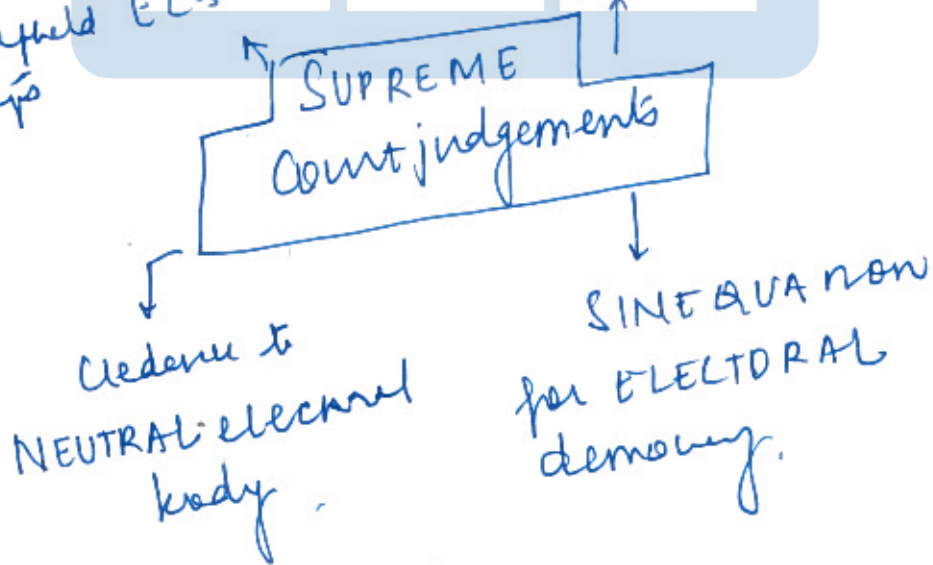 upheld
SUPREME
Court judgements
Credence to
NEUTRAL electoral
body.
SINE QUA non
for ELECTORAL
democracy.